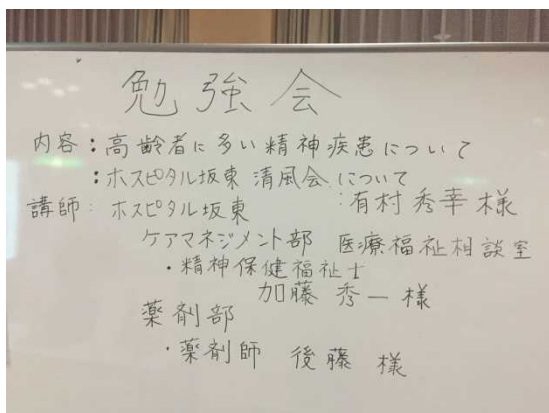 勉強会
内容:高齢者に多い精神疾患について
:ホスピタル坂東 清風会について
講師:ホスピタル坂東 :有村秀幸様
ケアマネジメント部 医療福祉相談室
・精神保健福祉士
加藤 秀一様
薬剤部
・薬剤師 後藤 様